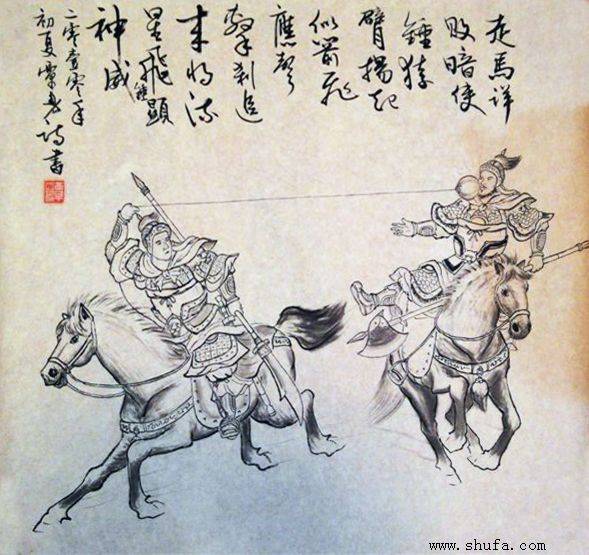 走馬詳
敗暗使
錘猿
臂揚起
似箭飛
應聲
擊刹追
来將流
星飛錘顯
神威
二零壹零年
初夏 诗書
www.shufa.com